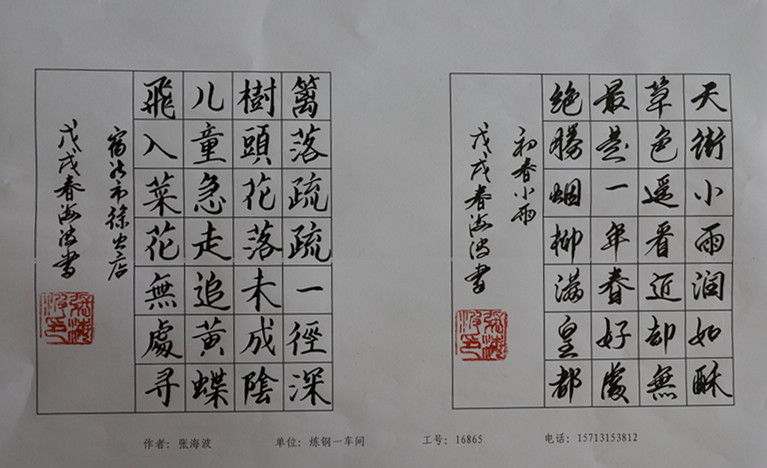 天街小雨润如酥
草色遥看近却無
最是一年春好處
绝勝烟柳满皇都
初春小雨
戊戌春海波書
篱落疏疏一徑深
樹頭花落未成陰
儿童急走追黄蝶
飛入菜花無處寻
宿新市徐公店
戊戌春海波書
作者：张海波 单位：炼钢一车间 工号：16865 电话：15713153812